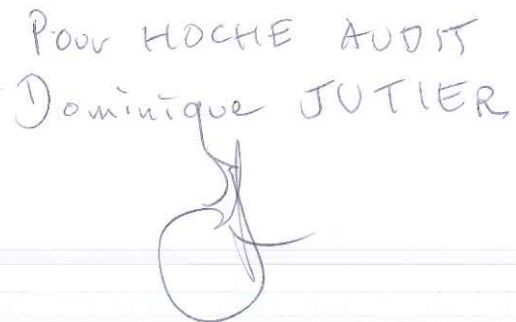 Pour HOCHE AUDIT
Dominique JUTIER